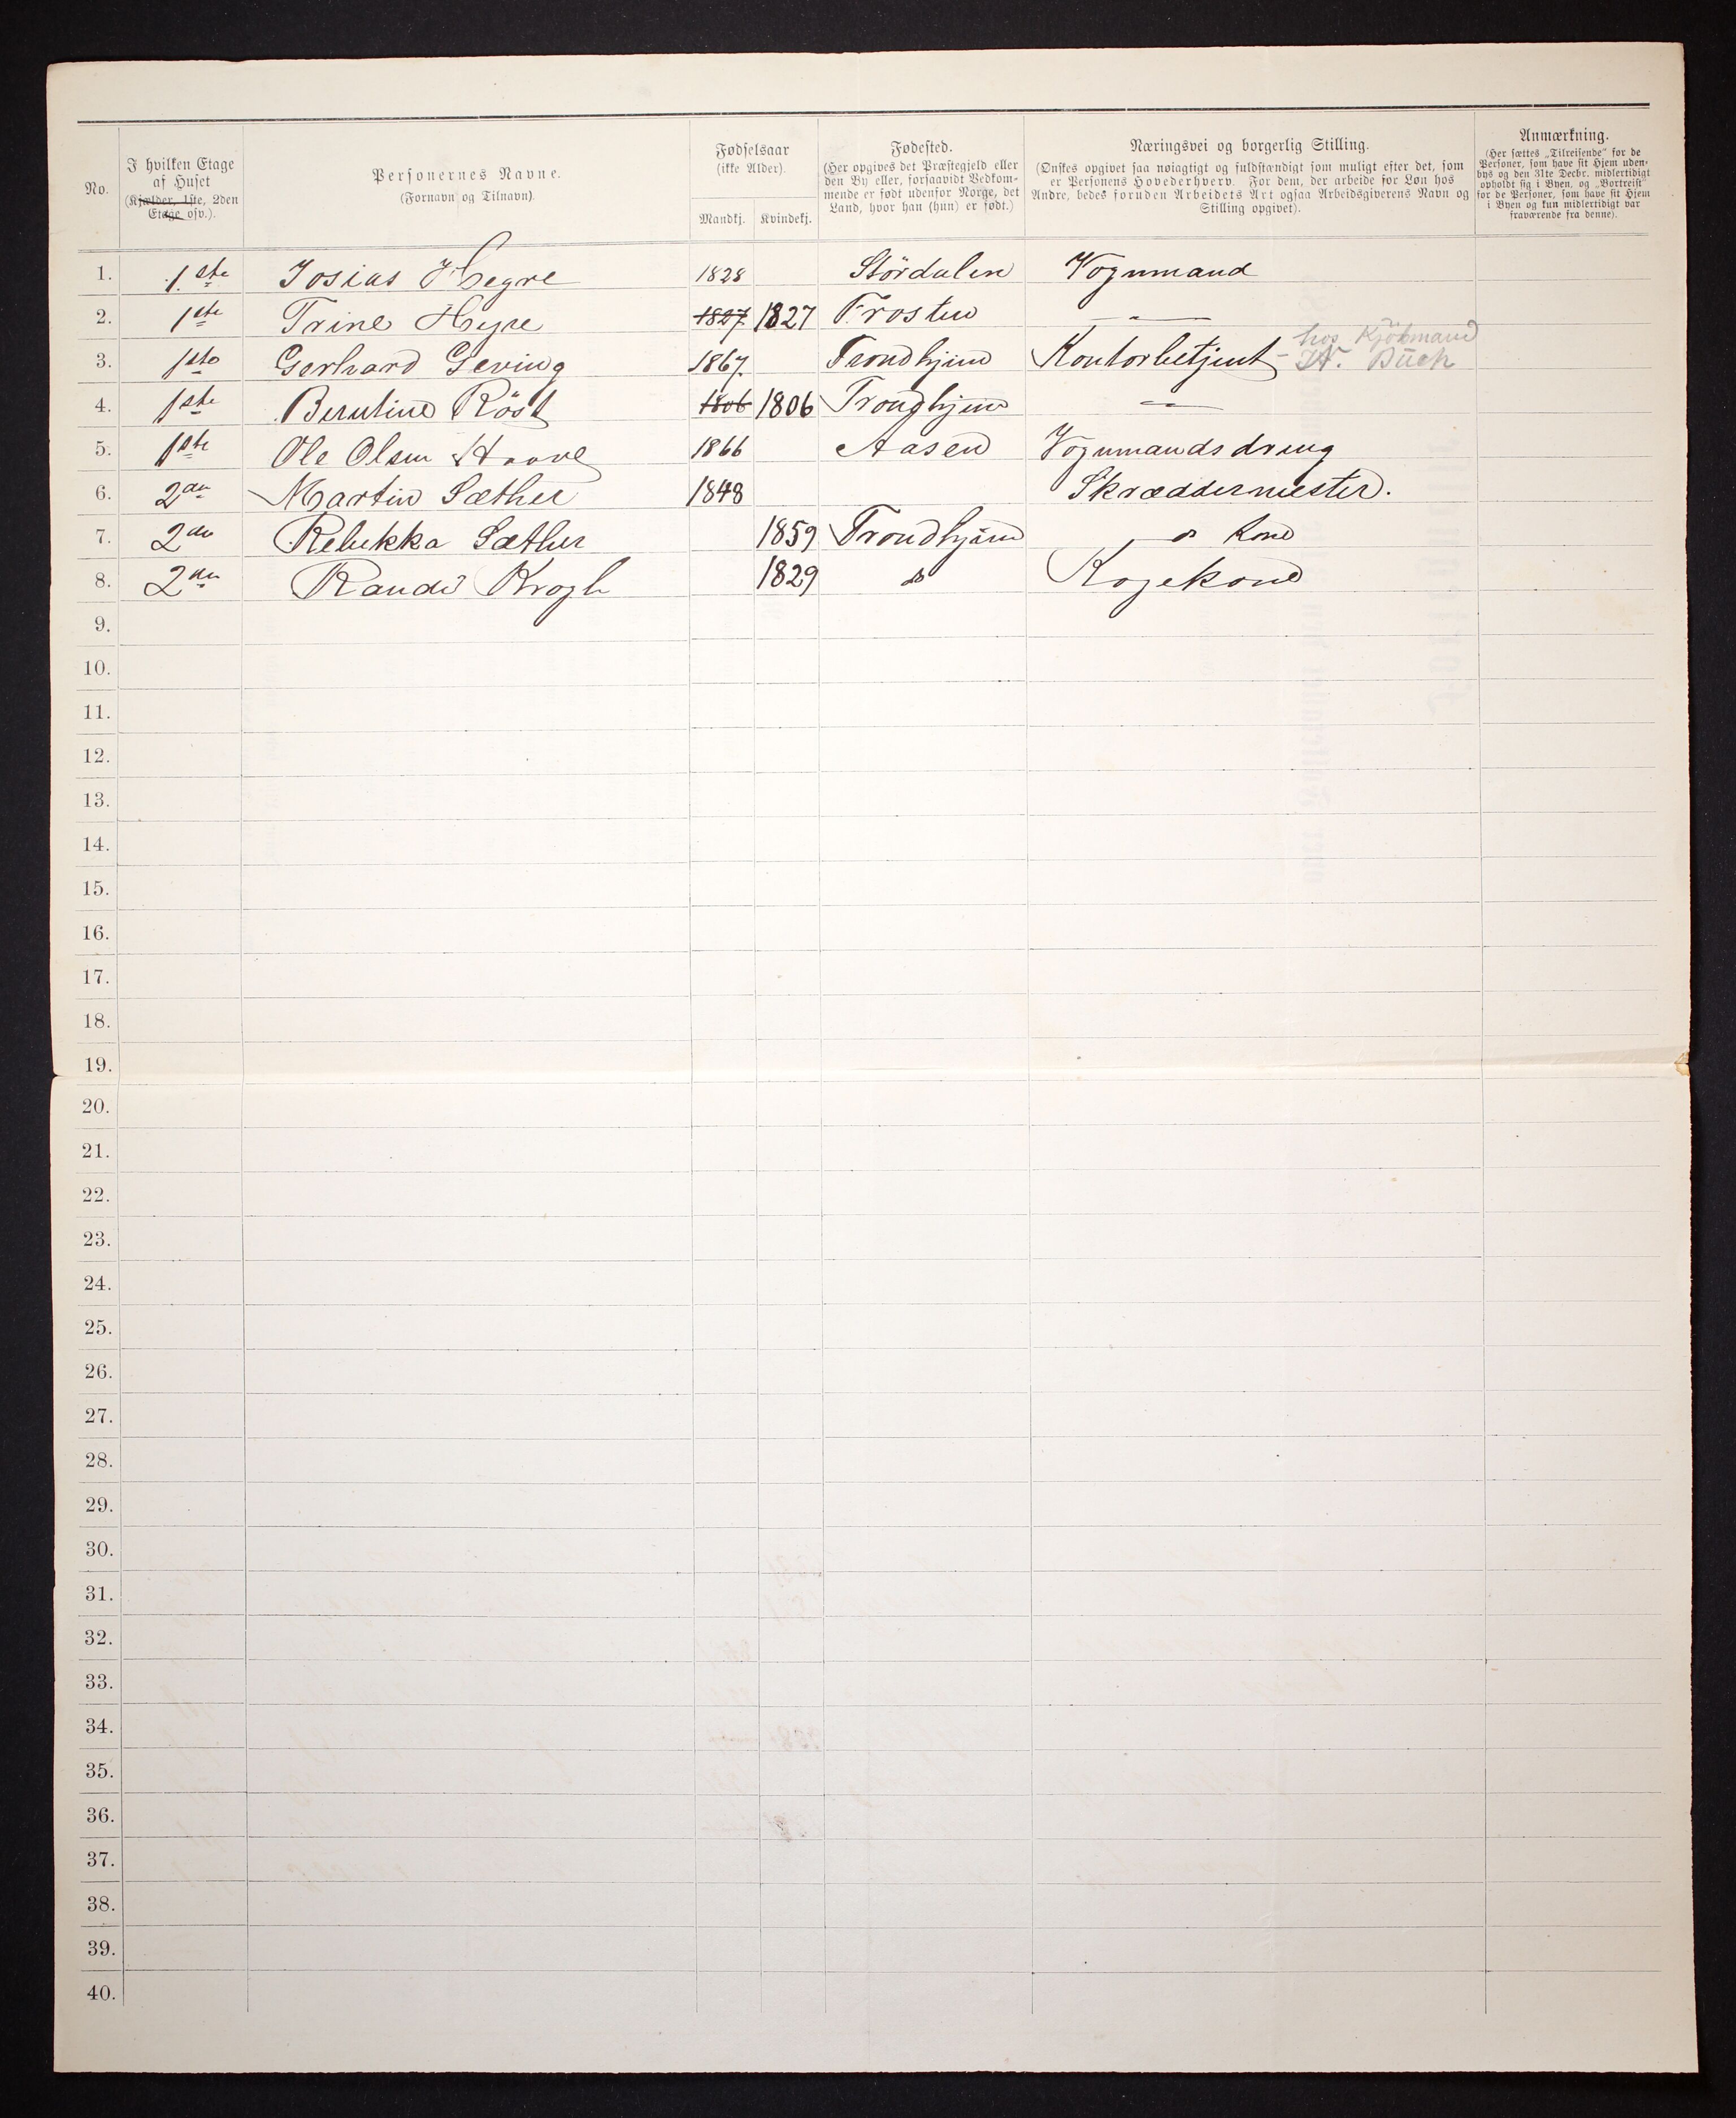 No.
I hvilken Etage af Huset (Kjælder, 1ste, 2den Etage osv.).
Personernes Navne. (Fornavn og Tilnavn).
Fødselsaar (ikke Alder).
Mandkj. Kvindekj.
Fødested. (Her opgives det Præstegjeld eller den By eller, forsaavidt Vedkommende er født udenfor Norge, det Land, hvor han (hun) er født.)
Næringsvei og borgerlig Stilling. (Ønskes opgivet saa nøiagtigt og fuldstændigt som muligt efter det, som er Personens Hovederhverv. For dem, der arbeide for Løn hos Andre, bedes foruden Arbeidets Art ogsaa Arbeidsgiverens Navn og Stilling opgivet).
Anmærkning. (Her sættes „Tilreisende“ for de Personer, som have sit Hjem udenbys og den 31te Decbr. midlertidigt opholdt sig i Byen, og „Bortreist“ for de Personer, som have sit Hjem i Byen og kun midlertidigt var fraværende fra denne).
1. 1ste Josias Hegre 1828 Stördalen Vognmand
2. 1ste Trine Hegre 1827 1827 Frosten —"—
hos Kjöbmand
3. 1ste Gerhard Geving 1867. Trondhjem Kontorbetjent - H. Buch
4. 1ste Berntine Röst 1806 1806 Trondhjem —"—
5. 1ste Ole Olsen Haave 1866 Aasen Vognmandsdreng
6. 2den Martin Sæther 1848 Skræddermester.
7. 2den Rebekka Sæther 1859 Trondhjem do Kone
8. 2den Randi Krogh 1829 do Kogekone
9.
10.
11.
12.
13.
14.
15.
16.
17.
18.
19.
20.
21.
22.
23.
24.
25.
26.
27.
28.
29.
30.
31.
32.
33.
34.
35.
36.
37.
38.
39.
40.